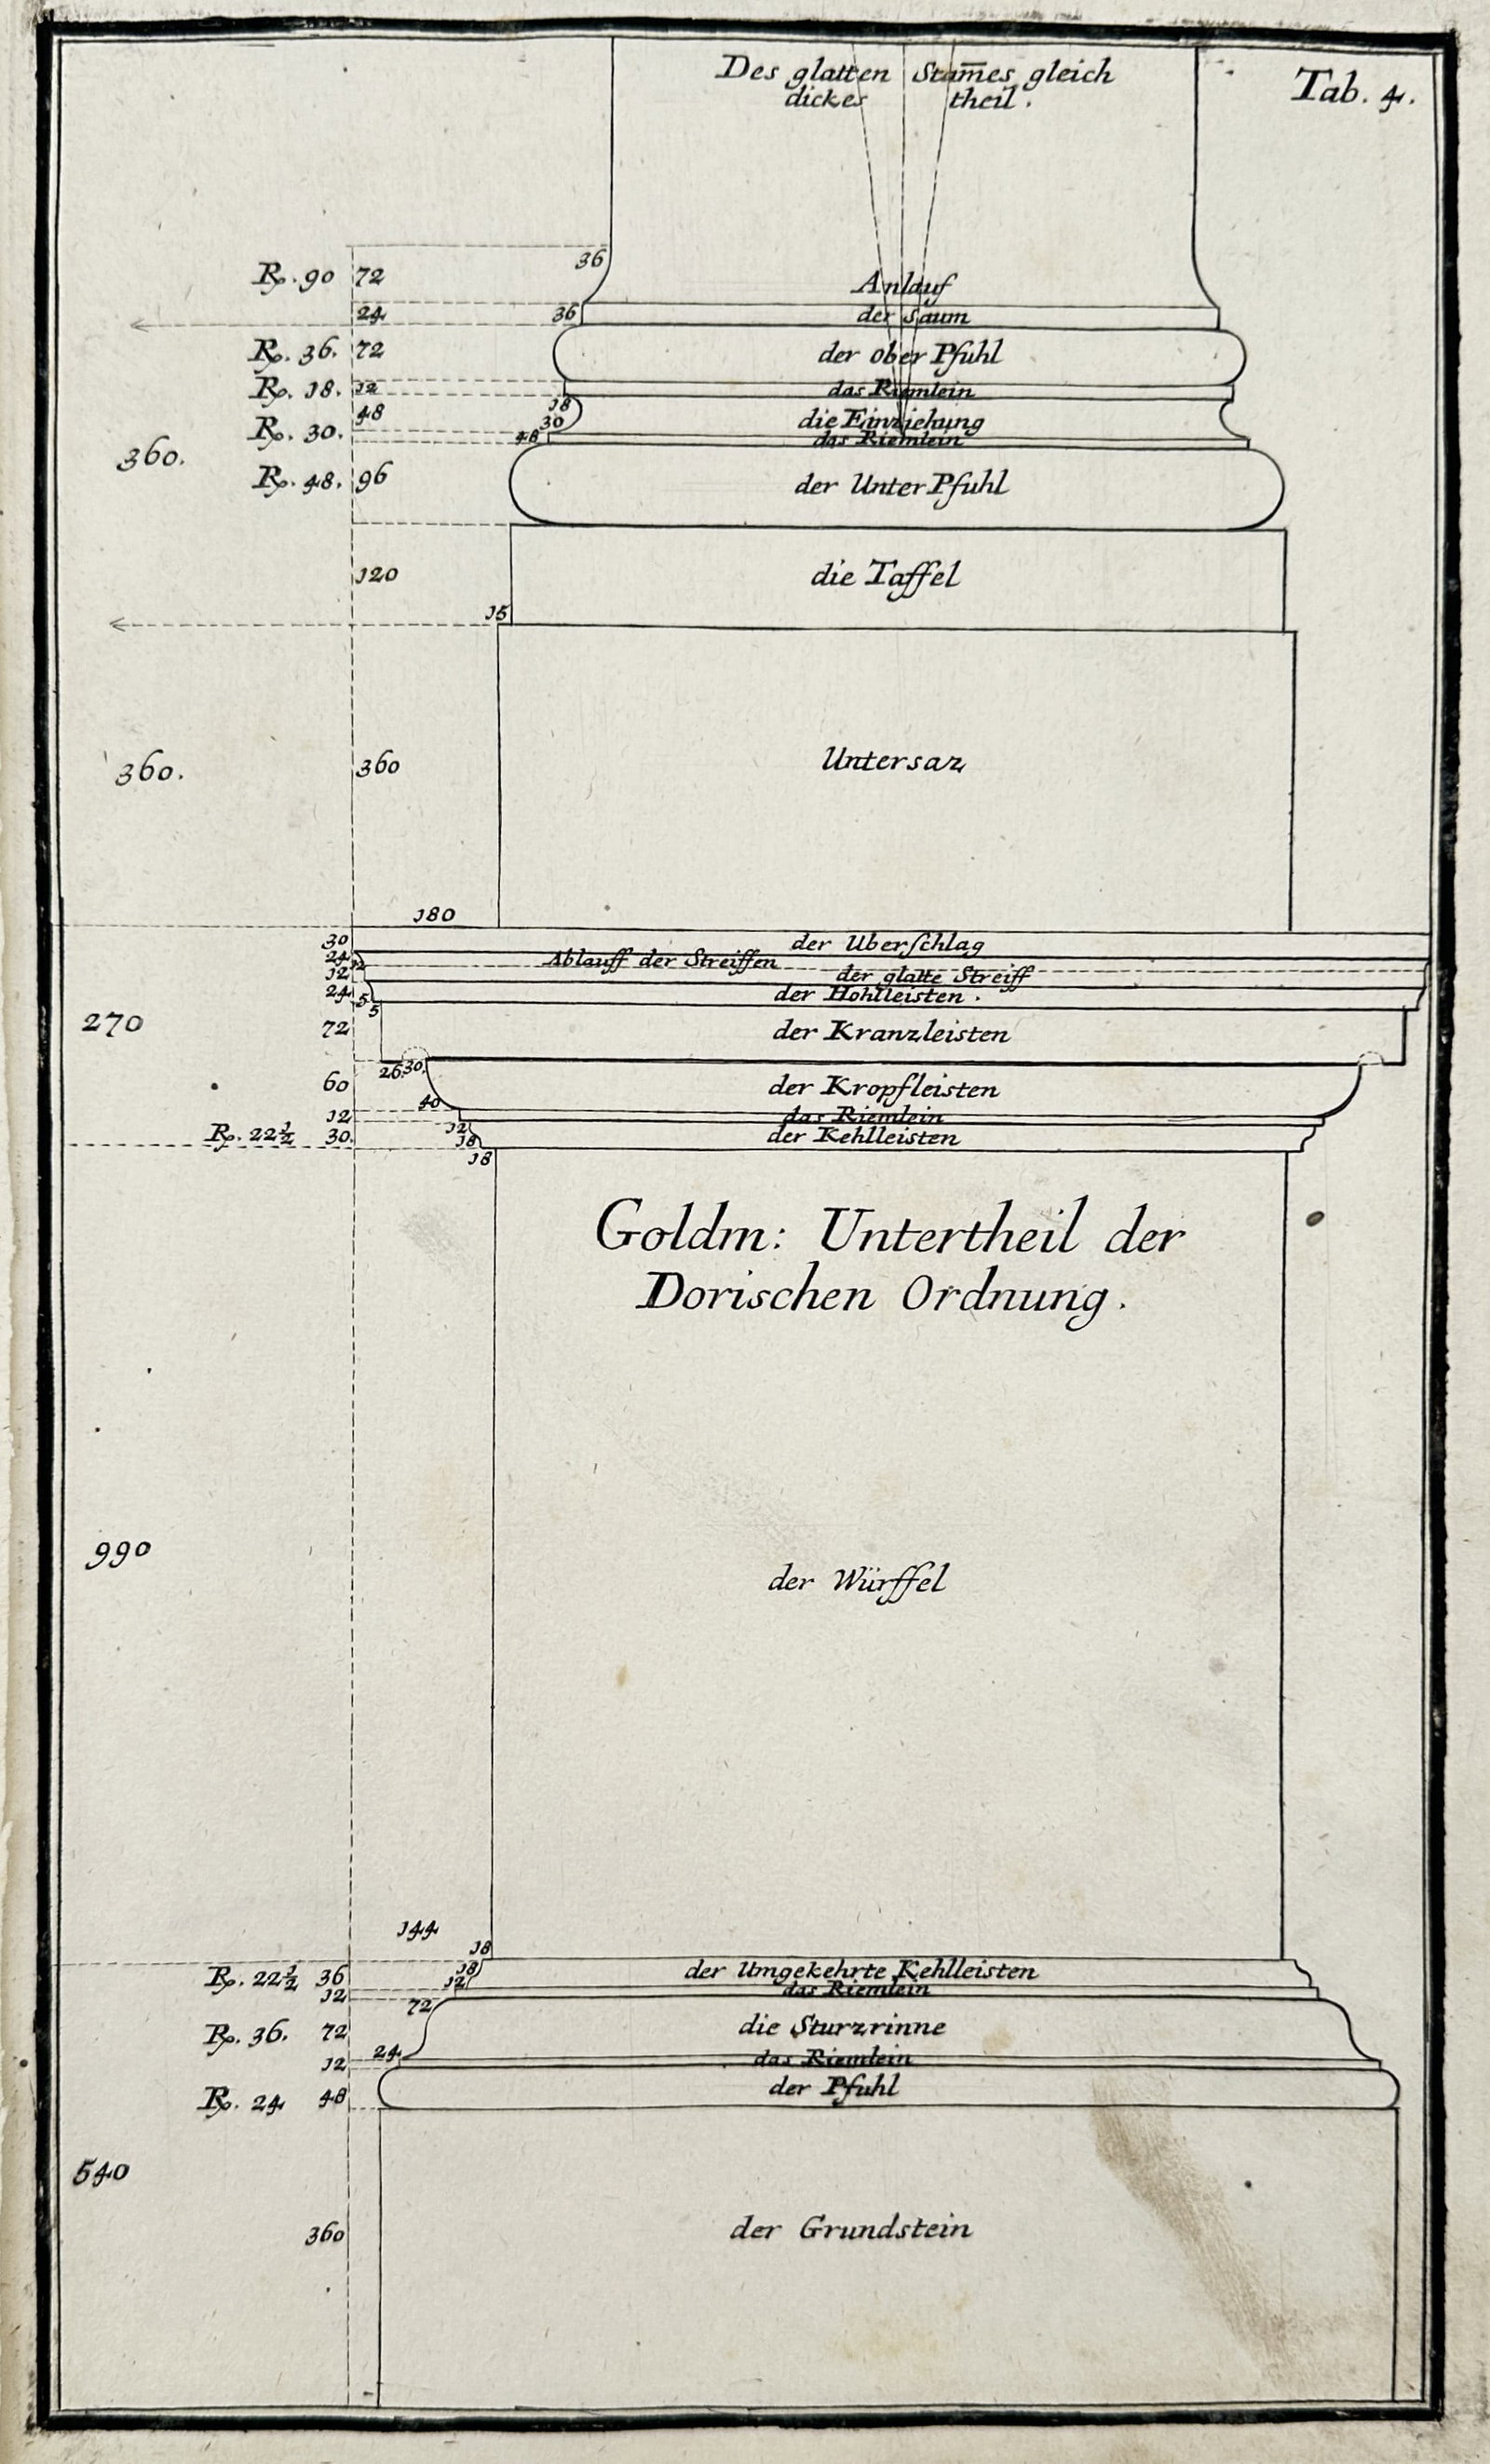 Des glatten Stam̅es gleich
dickes theil.
Tab. 4.
36
R. 90 72 Anlauf
24 36 der Saum
R. 36. 72 der ober Pfuhl
R. 18. 12 das Riemlein
18
48 30 die Einziehung
R. 30. 48 das Riemlein
360.
R. 48. 96 der Unter Pfuhl
120 die Taffel
15
360. 360 Untersaz
180
30 der Uberschlag
24 Ablauff der Streiffen
12 12 der glatte Streiff
24 5 der Hohlleisten.
5
270 72 der Kranzleisten
26. 30.
60 der Kropfleisten
40
12 das Riemlein
12
R. 22½ 30. 18 der Kehlleisten
18
Goldm: Untertheil der
Dorischen Ordnung.
990 der Würffel
144
18
R. 22½ 36 18 der Umgekehrte Kehlleisten
12 12 das Riemlein
72
R. 36. 72 die Sturzrinne
12 24 das Riemlein
R. 24 48 der Pfuhl
540
360 der Grundstein